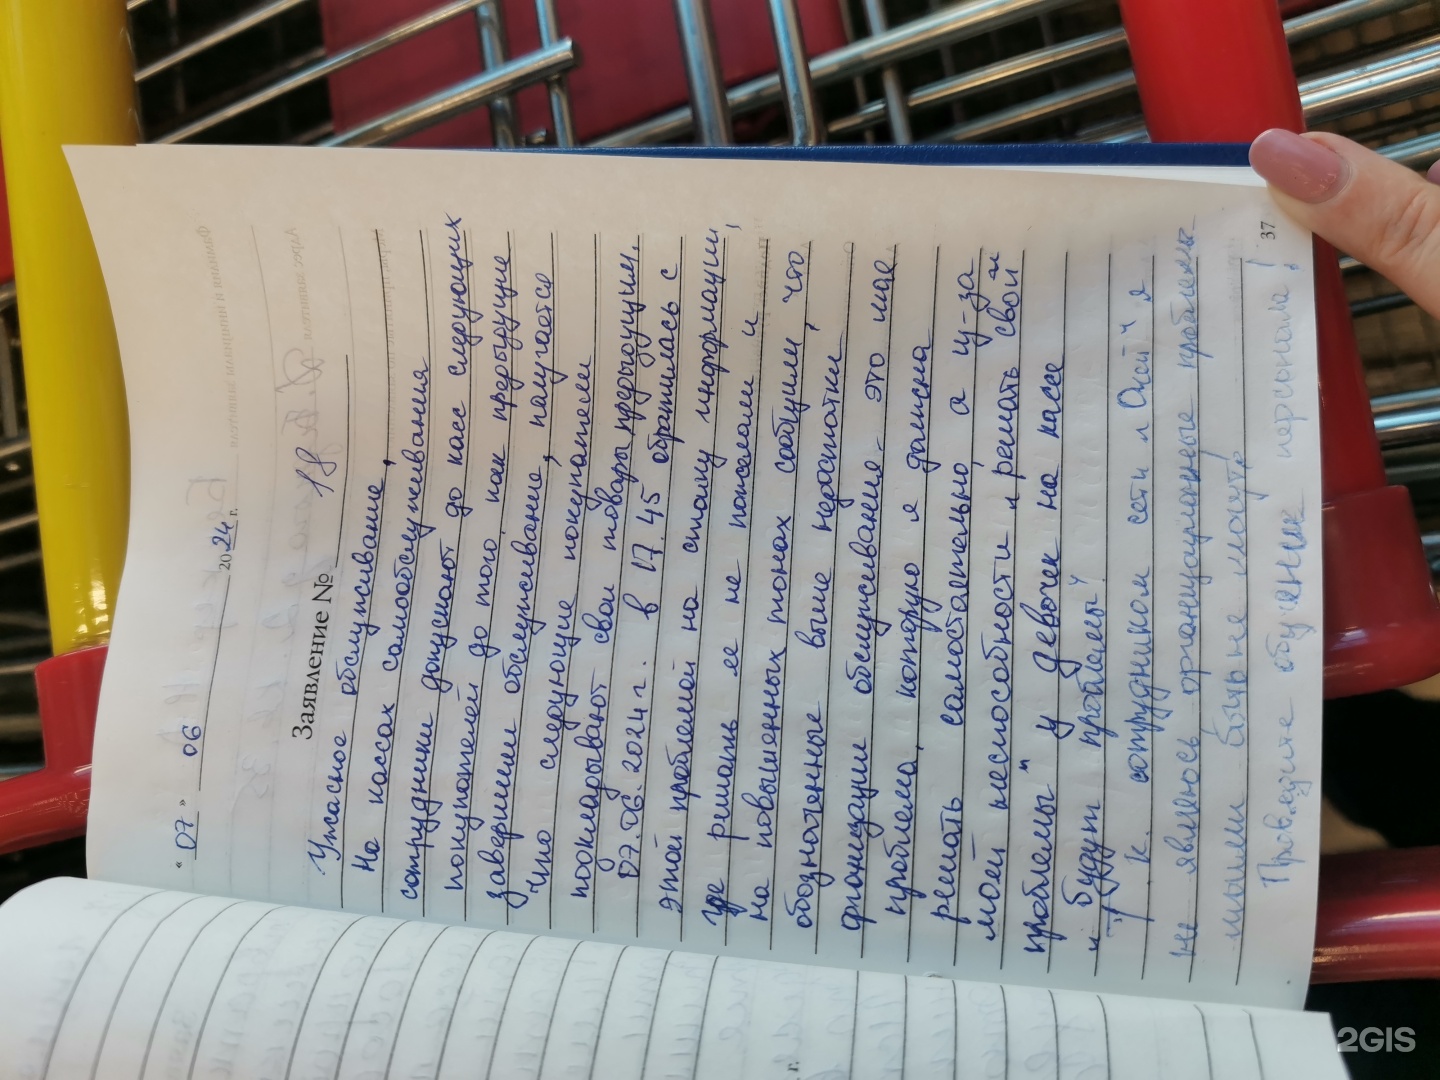 « 07 » 06 2024 г.
Заявление № 18
Ужасное обслуживание,
На кассах самообслуживания
сотрудники допускают до касс следующих
покупателей до того, как предыдущие
завершили обслуживание, получается
что следующие покупатели
пооткладывают свои товары предыдущим.
07.06.2024 г. в 17.45 обратилась с
этой проблемой на стойку информации,
где решить ее не пожелали и
на повышенных тонах сообщили, что
обозначенные выше недостатки
организации обслуживания - это моя
проблема, которую я должна
решать самостоятельно, а из-за
моей неспособности и решать свои
проблемы" у девочек на кассе
и будут проблемы"
Т.к. сотрудником сети я
не являюсь организационные проблемы
моими быть не могут
Проведите обучение персонала!
37
2GIS